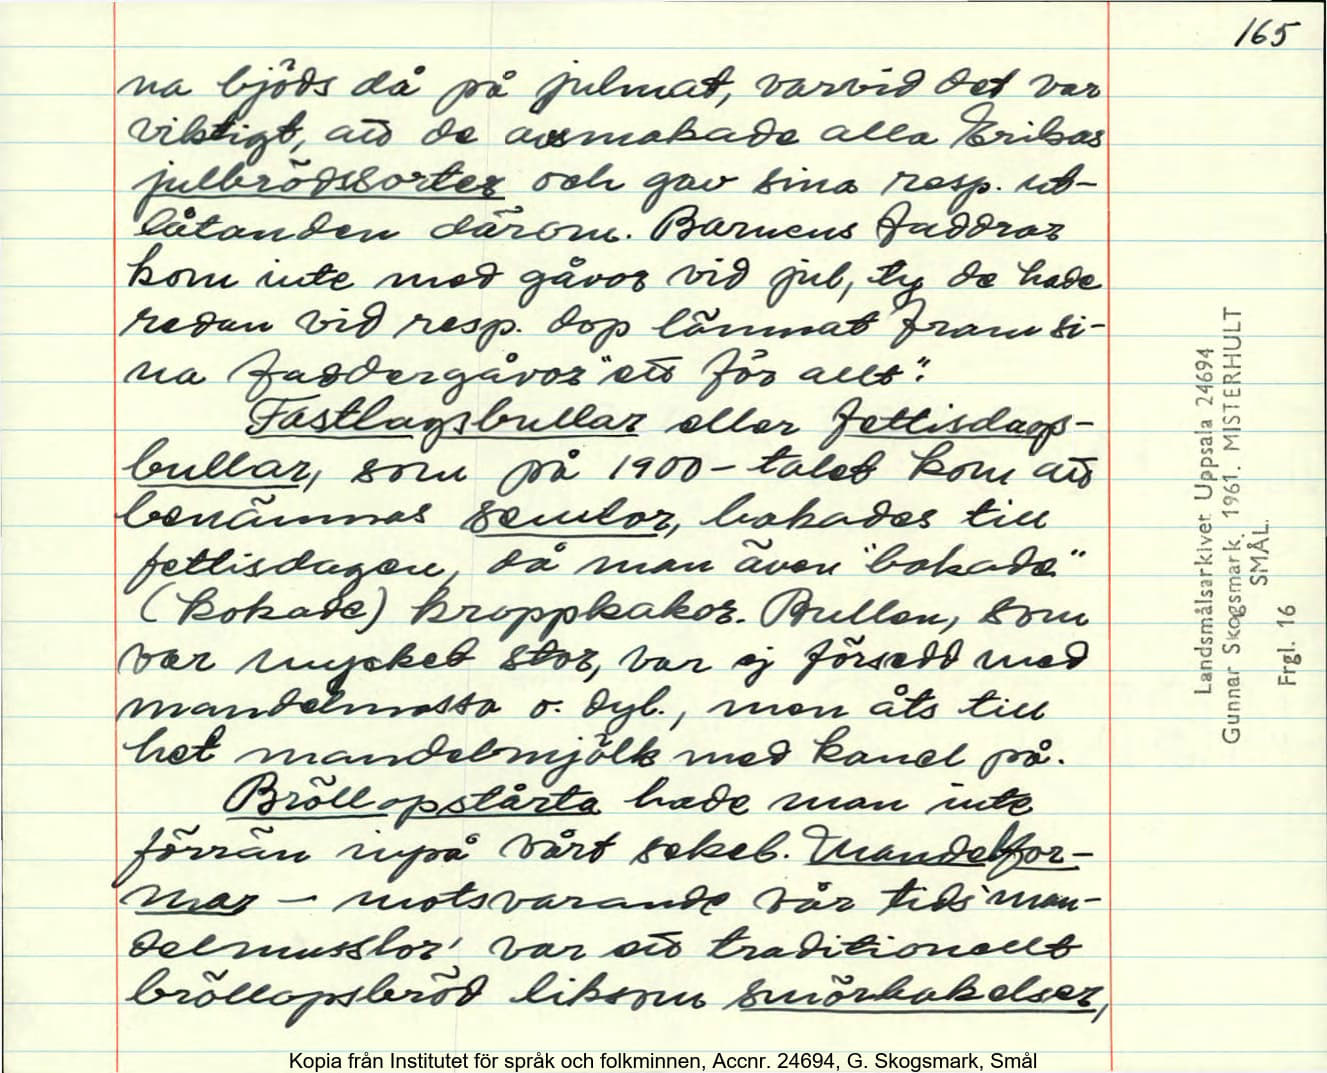 165
na bjöds då på julmat, varvid det var
viktigt, att de avsmakade alla Erikas
julbrödssorter och gav sina resp. ut-
låtanden därom. Barnens faddrar
kom inte med gåvor vid jul, ty de hade
redan vid resp. dop lämnat fram si-
na faddergåvor "ett för allt".
Fastlagsbullar eller fettisdags-
bullar, som på 1900-talet kom att
benämnas semlor, bakades till
fettisdagen, då man även "bakade"
(kokade) kroppkakor. Bullen, som
var mycket stor, var ej försedd med
mandelmassa o. dyl., men åts till
het mandelmjölk med kanel på.
Bröllopstårta hade man inte
förrän inpå vårt sekel. Mandelfor-
mar – motsvarande vår tids 'man-
delmusslor' var ett traditionellt
bröllopsbröd liksom smörbakelser,
Landsmålsarkivet Uppsala 24694
Gunnar Skogsmark. 1961. MISTERHULT
SMÅL.
Frgl. 16
Kopia från Institutet för språk och folkminnen, Accnr. 24694, G. Skogsmark, Smål